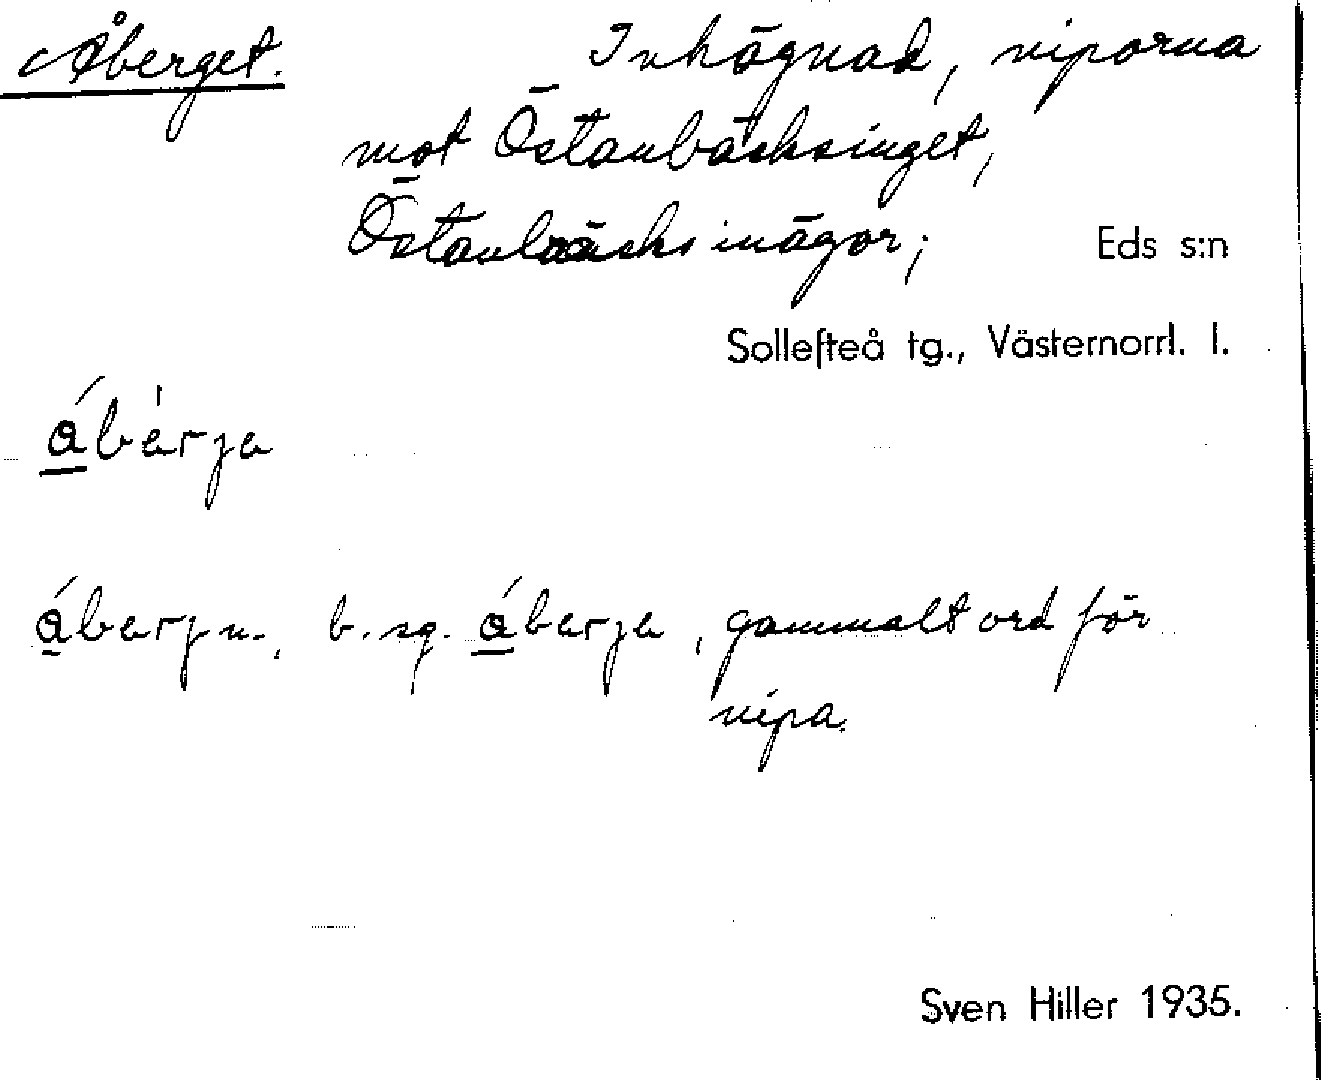 Åberget. Inhägnad, niporna
mot Östanbäcksinget,
Östanbäcks inägor; Eds s:n
Sollefteå tg., Västernorrl. l.
ábàrja
ábarj n., b. sg. ábarja, gammalt ord för
nipa.
Sven Hiller 1935.